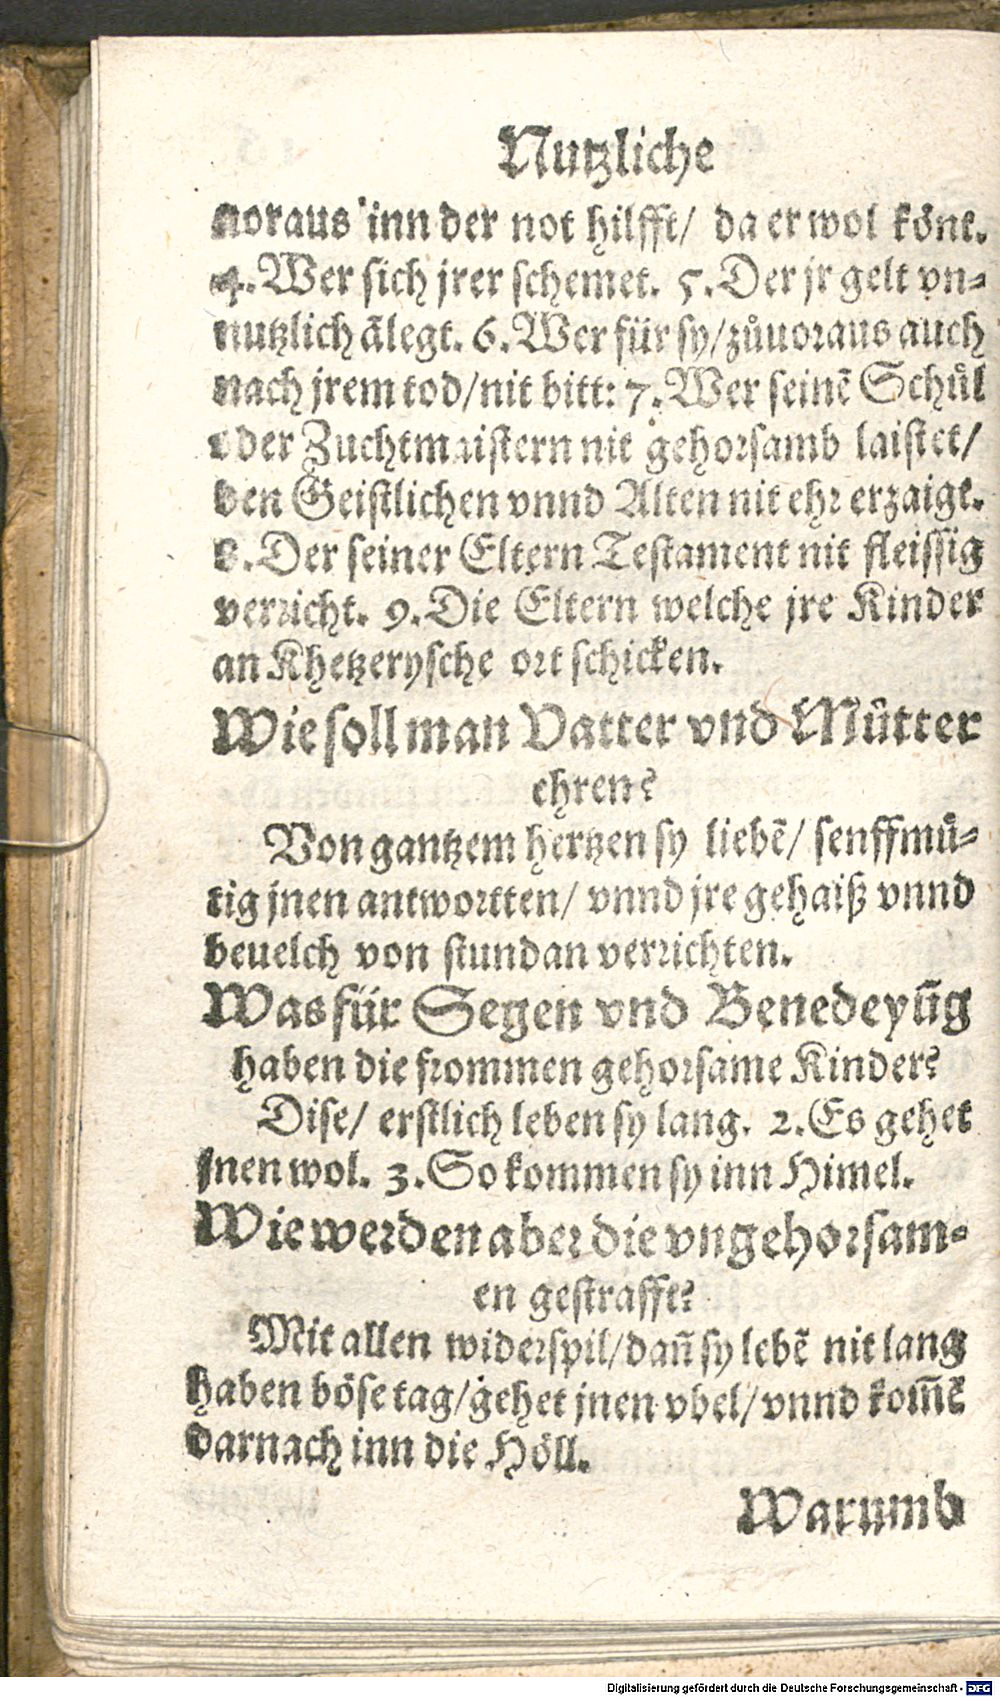 Nutzliche
uoraus inn der not hilfft/ da er wol könt.
4. Wer sich jrer schemet. 5. Der jr gelt vn⸗
nutzlich ālegt. 6. Wer für sy/zůuoraus auch
nach jrem tod/nit bitt: 7. Wer seinē Schůl
oder Zuchtmaistern nit gehorsamb laistet/
den Geistlichen vnnd Alten nit ehr erzaigt.
8. Der seiner Eltern Testament nit fleissig
verricht. 9. Die Eltern welche jre Kinder
an Khetzerysche ort schicken.
Wie soll man Vatter vnd Můtter
ehren?
Von gantzem hertzen sy liebē/ senffmů⸗
tig jnen antwortten/ vnnd jre gehaiß vnnd
beuelch von stundan verrichten.
Was für Segen vnd Benedeyūg
haben die frommen gehorsame Kinder?
Dise/ erstlich leben sy lang. 2. Es gehet
jnen wol. 3. So kommen sy inn Himel.
Wie werden aber die vngehorsam⸗
en gestrafft?
Mit allen widerspil/dañ sy lebē nit lang
haben böse tag/gehet jnen vbel/vnnd kom̄ē
darnach inn die Höll.
Warumb
Digitalisierung gefördert durch die Deutsche Forschungsgemeinschaft - DFG